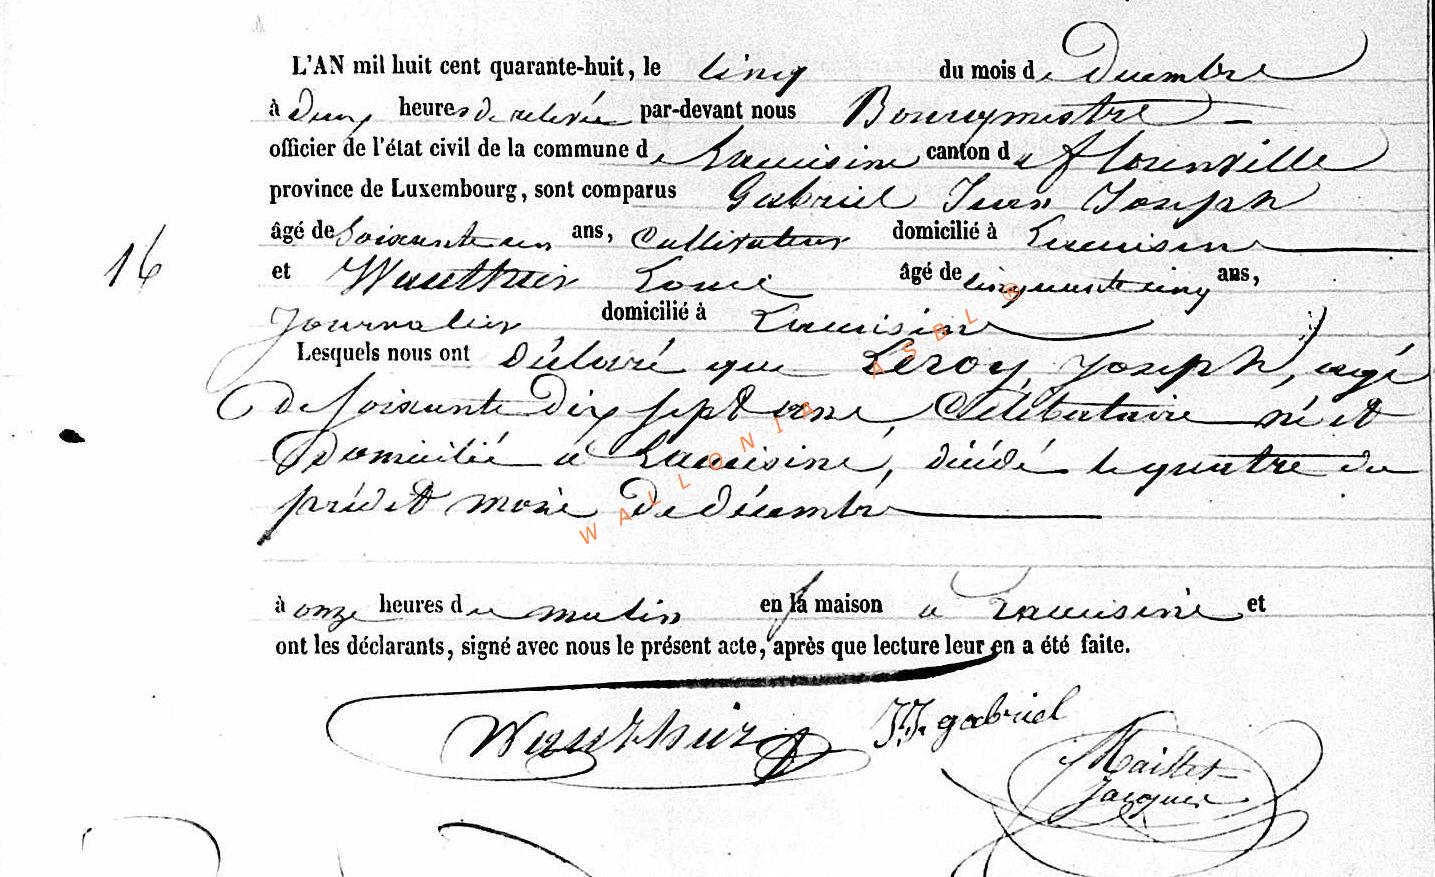 L'AN mil huit cent quarante-huit, le cinq du mois de Decembre
à deux heures de relevée par-devant nous Bourgmestre
officier de l'état civil de la commune de Lacuisine canton de florenville
province de Luxembourg, sont comparus Gabriel Jean Joseph
âgé de Soixante un ans, Cultivateur domicilié à Lacuisine
16
et Wauthier Louis âgé de cinquante cinq ans,
Journalier domicilié à Lacuisine
Lesquels nous ont déclaré que Leroy Joseph, agé
de soixante dix sept ans, Célibataire né et
Domicilié a Lacuisine, décédé le quatre du
prédit mois de décembre
WALLONIA ASBL ®
à onze heures du matin en la maison a Lacuisine et
ont les déclarants, signé avec nous le présent acte, après que lecture leur en a été faite.
Wauthier
JJ. gabriel
Maillet
Jacques